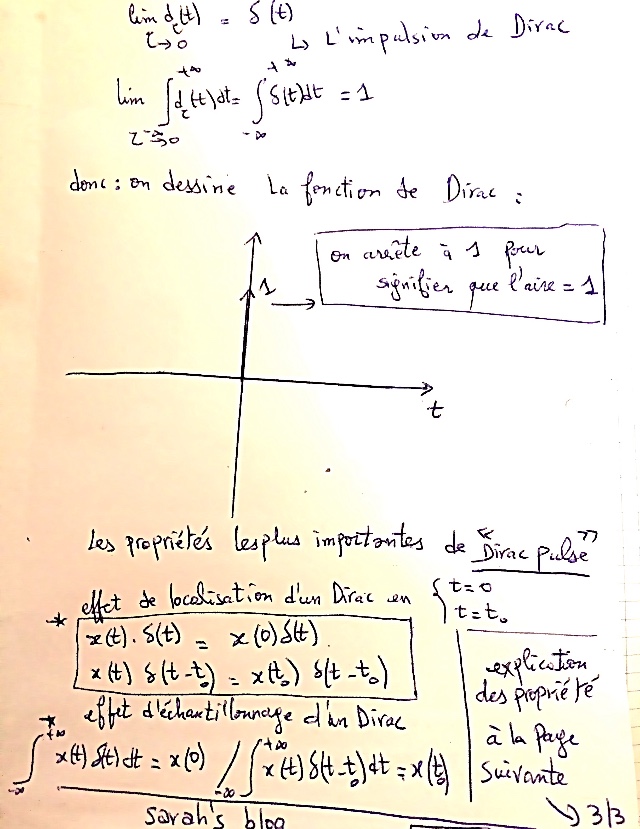 lim d_τ(t) = δ(t)
τ→0
↳ L'impulsion de Dirac
lim ∫_{-∞}^{+∞} d_τ(t)dt = ∫_{-∞}^{+∞} δ(t)dt = 1
τ→0
donc : on dessine la fonction de Dirac :
on arrête à 1 pour
signifier que l'aire = 1
1
t
Les propriétés les plus importantes de «Dirac pulse»
* effet de localisation d'un Dirac en { t=0
t=t₀
x(t).δ(t) = x(0)δ(t)
x(t) δ(t-t₀) = x(t₀) δ(t-t₀)
* effet d'échantillonnage d'un Dirac
∫_{-∞}^{+∞} x(t)δ(t)dt = x(0) / ∫_{-∞}^{+∞} x(t)δ(t-t₀)dt = x(t₀)
explication
des propriété
à la Page
suivante
↘ 3/3
Sarah's blog